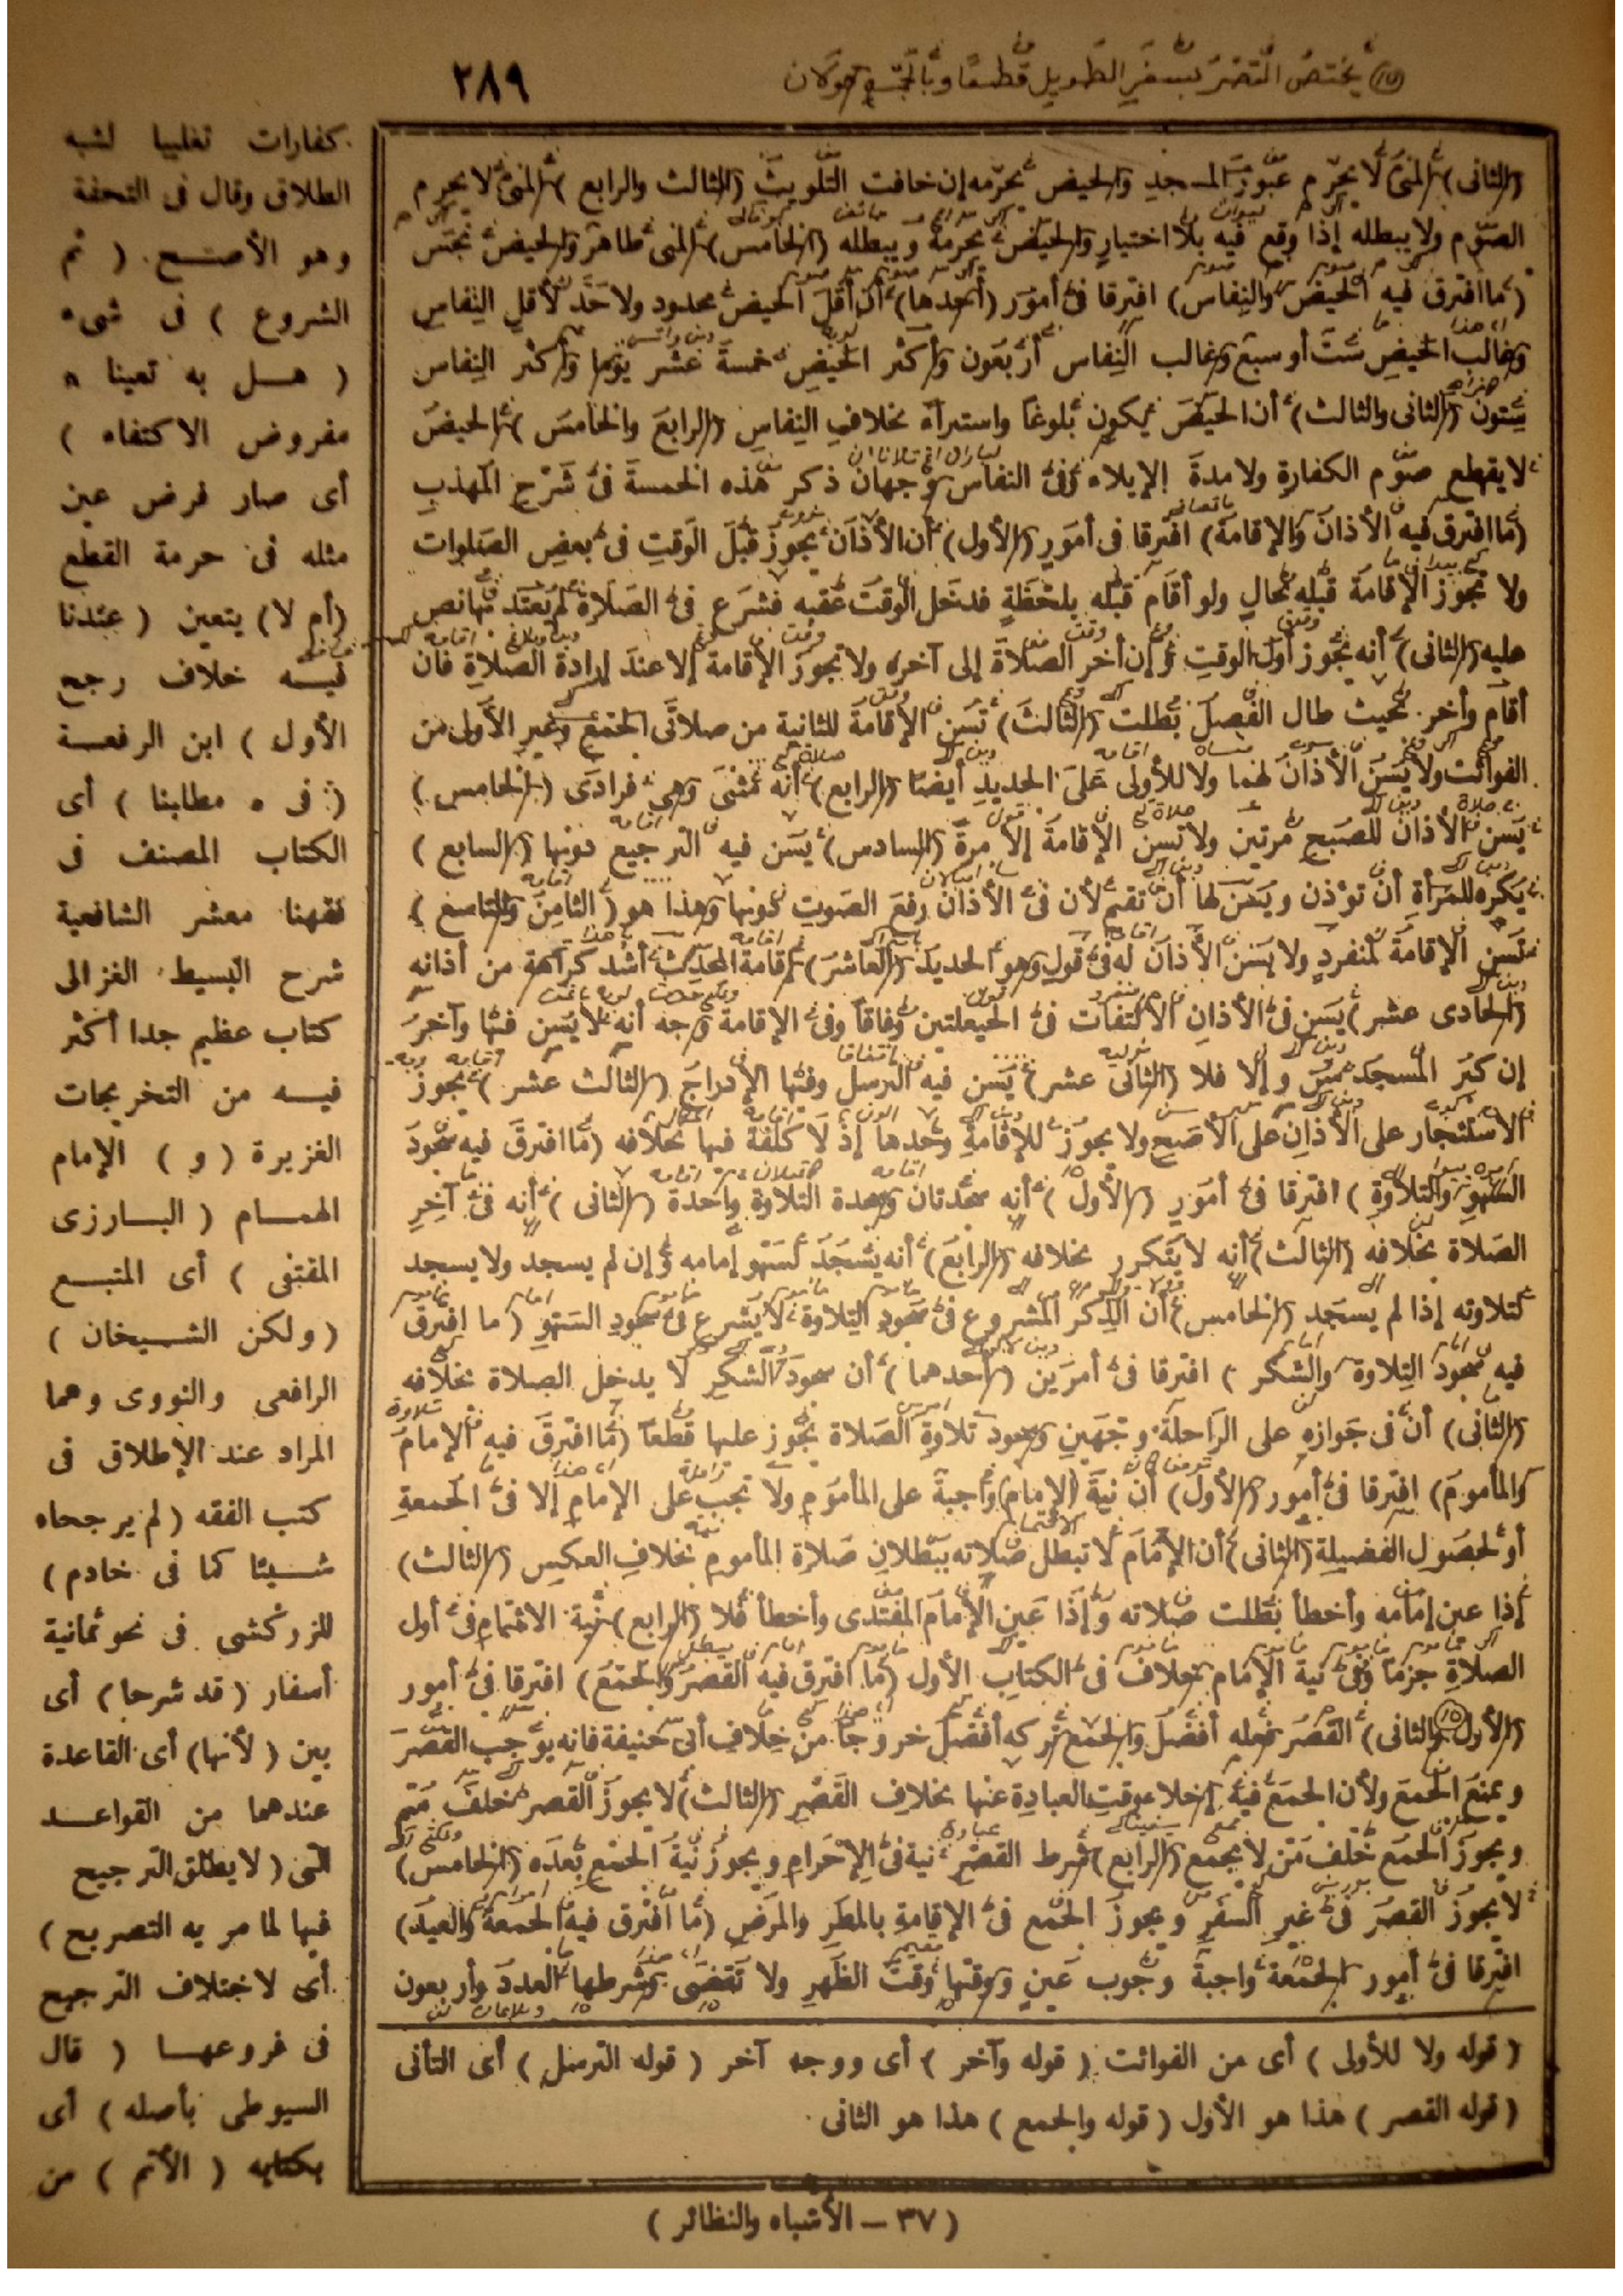 يختص القصر بسفر الطويل قطعا وبالجمع قولان
٢٨٩
(الثانى) المنى لا يحرم عبور المسجد والحيض يحرمه إن خافت التلويث (الثالث والرابع) المنى لا يحرم
الصوم ولا يبطله إذا وقع فيه بلا اختيار والحيض يحرمه ويبطله (الخامس) المنى طاهر والحيض نجس
(ما افترق فيه الحيض والنفاس) افترقا فى أمور (أحدها) أن أقل الحيض محدود ولا حد لأقل النفاس
وغالب الحيض ست أو سبع وغالب النفاس أربعون وأكثر الحيض خمسة عشر يوما وأكثر النفاس
ستون (الثانى والثالث) أن الحيض يكون بلوغا واستبراء بخلاف النفاس (الرابع والخامس) الحيض
لا يقطع صوم الكفارة ولا مدة الإيلاء وفى النفاس وجهان ذكر هذه الخمسة فى شرح المهذب
(ما افترق فيه الأذان والإقامة) افترقا فى أمور (الأول) أن الأذان يجوز قبل الوقت فى بعض الصلوات
ولا تجوز الإقامة قبله بحال ولو أقام قبله بلحظة فدخل الوقت عقبه فشرع فى الصلاة لم يعتد بها نص
عليه (الثانى) أنه يجوز أول الوقت وإن أخر الصلاة إلى آخره ولا تجوز الإقامة إلا عند إرادة الصلاة فان
أقام وأخر بحيث طال الفصل بطلت (الثالث) تسن الإقامة للثانية من صلاتى الجمع وغير الأولى من
الفوائت ولا يسن الأذان لهما ولا للأولى على الجديد أيضا (الرابع) أنه مثنى وهى فرادى (الخامس)
يسن الأذان للصبح مرتين ولا تسن الإقامة إلا مرة (السادس) يسن فيه الترجيع دونها (السابع)
يكره للمرأة أن تؤذن ويسن لها أن تقيم لأن فى الأذان رفع الصوت دونها وهذا هو (الثامن والتاسع)
تسن الإقامة لمنفرد ولا يسن الأذان له فى قول وهو الجديد (العاشر) إقامة المحدث أشد كراهة من أذانه
(الحادى عشر) يسن فى الأذان الالتفات فى الحيعلتين وفاقا وفى الإقامة وجه أنه لا يسن فيها وآخر
إن كبر المسجد سن وإلا فلا (الثانى عشر) يسن فيه الترسل وفيها الإدراج (الثالث عشر) يجوز
الاستئجار على الأذان على الأصح ولا يجوز للإقامة وحدها إذ لا كلفة فيها بخلافه (ما افترق فيه سجود
السهو والتلاوة) افترقا فى أمور (الأول) أنه سجدتان وسجدة التلاوة واحدة (الثانى) أنه فى آخر
الصلاة بخلافه (الثالث) أنه لا يتكرر بخلافه (الرابع) أنه يسجد لسهو إمامه وإن لم يسجد ولا يسجد
لتلاوته إذا لم يسجد (الخامس) أن الذكر المشروع فى سجود التلاوة لا يشرع فى سجود السهو (ما افترق
فيه سجود التلاوة والشكر) افترقا فى أمرين (أحدهما) أن سجود الشكر لا يدخل الصلاة بخلافه
(الثانى) أن فى جوازه على الراحلة وجهين وسجود تلاوة الصلاة يجوز عليها قطعا (ما افترق فيه الإمام
والمأموم) افترقا فى أمور (الأول) أن نية (الإمام) واجبة على المأموم ولا تجب على الإمام إلا فى الجمعة
أو لحصول الفضيلة (الثانى) أن الإمام لا تبطل صلاته ببطلان صلاة المأموم بخلاف العكس (الثالث)
إذا عين إمامه وأخطأ بطلت صلاته وإذا عين الإمام المقتدى وأخطأ فلا (الرابع) نية الائتمام فى أول
الصلاة جزما وفى نية الإمام بخلاف فى الكتاب الأول (ما افترق فيه القصر والجمع) افترقا فى أمور
(الأول والثانى) القصر فعله أفضل والجمع تركه أفضل خروجا من خلاف أبى حنيفة فانه يوجب القصر
ويمنع الجمع ولأن الجمع فيه إخلاء وقت العبادة عنها بخلاف القصر (الثالث) لا يجوز القصر خلف متم
ويجوز الجمع خلف من لا يجمع (الرابع) شرط القصر نية فى الإحرام ويجوز نية الجمع بعده (الخامس)
لا يجوز القصر فى غير السفر ويجوز الجمع فى الإقامة بالمطر والمرض (ما افترق فيه الجمعة والعيد)
افترقا فى أمور الجمعة واجبة وجوب عين ووقتها وقت الظهر ولا تقضى وشرطها العدد وأربعون
(قوله ولا للأولى) أى من الفوائت (قوله وآخر) أى ووجه آخر (قوله الترسل) أى التأنى
(قوله القصر) هذا هو الأول (قوله والجمع) هذا هو الثانى
كفارات تغليبا لشبه
الطلاق وقال فى التحفة
وهو الأصح. (ثم
الشروع) فى شىء
(هل به تعينا
مفروض الاكتفاء)
أى صار فرض عين
مثله فى حرمة القطع
(أم لا) يتعين (عندنا
فيه خلاف رجح
الأول) ابن الرفعة
(فى مطلبنا) أى
الكتاب المصنف فى
فقهنا معشر الشافعية
شرح البسيط الغزالى
كتاب عظيم جدا أكثر
فيه من التخريجات
الغزيرة (و) الإمام
الهمام (البارزى
المقتفى) أى المتبع
(ولكن الشيخان)
الرافعى والنووى وهما
المراد عند الإطلاق فى
كتب الفقه (لم يرجحاه
شيئا كما فى خادم)
للزركشى فى نحو ثمانية
أسفار (قد شرحا) أى
بين (لأنها) أى القاعدة
عندهما من القواعد
التى (لا يطلق الترجيح
فيها لما مر به التصريح)
أى لاختلاف الترجيح
فى فروعها (قال
السيوطى بأصله) أى
بكتابه (الأتم) من
(٣٧ – الأشباه والنظائر)